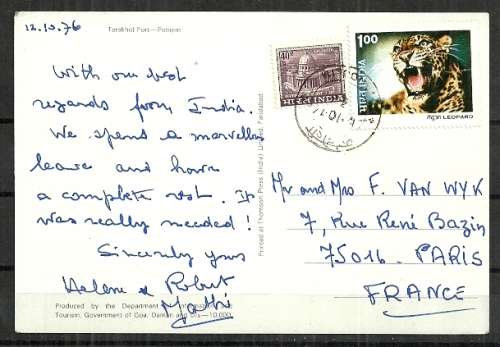 12.10.76
Terekhol Fort—Pernem
With our best
regards from India.
We spend a marvellous
leave and have
a complete rest. It
was really needed!
Sincerely yours
Helene & Robert
Produced by the Department
Tourism, Government of Goa, Daman and Diu—10,000
Printed at Thomson Press (India) Limited, Faridabad
40
भारत INDIA
1.00
भारत INDIA
तेंदुआ LEOPARD
Mr and Mrs F. VAN WYK
7, Rue René Bazin
75016 - PARIS
FRANCE